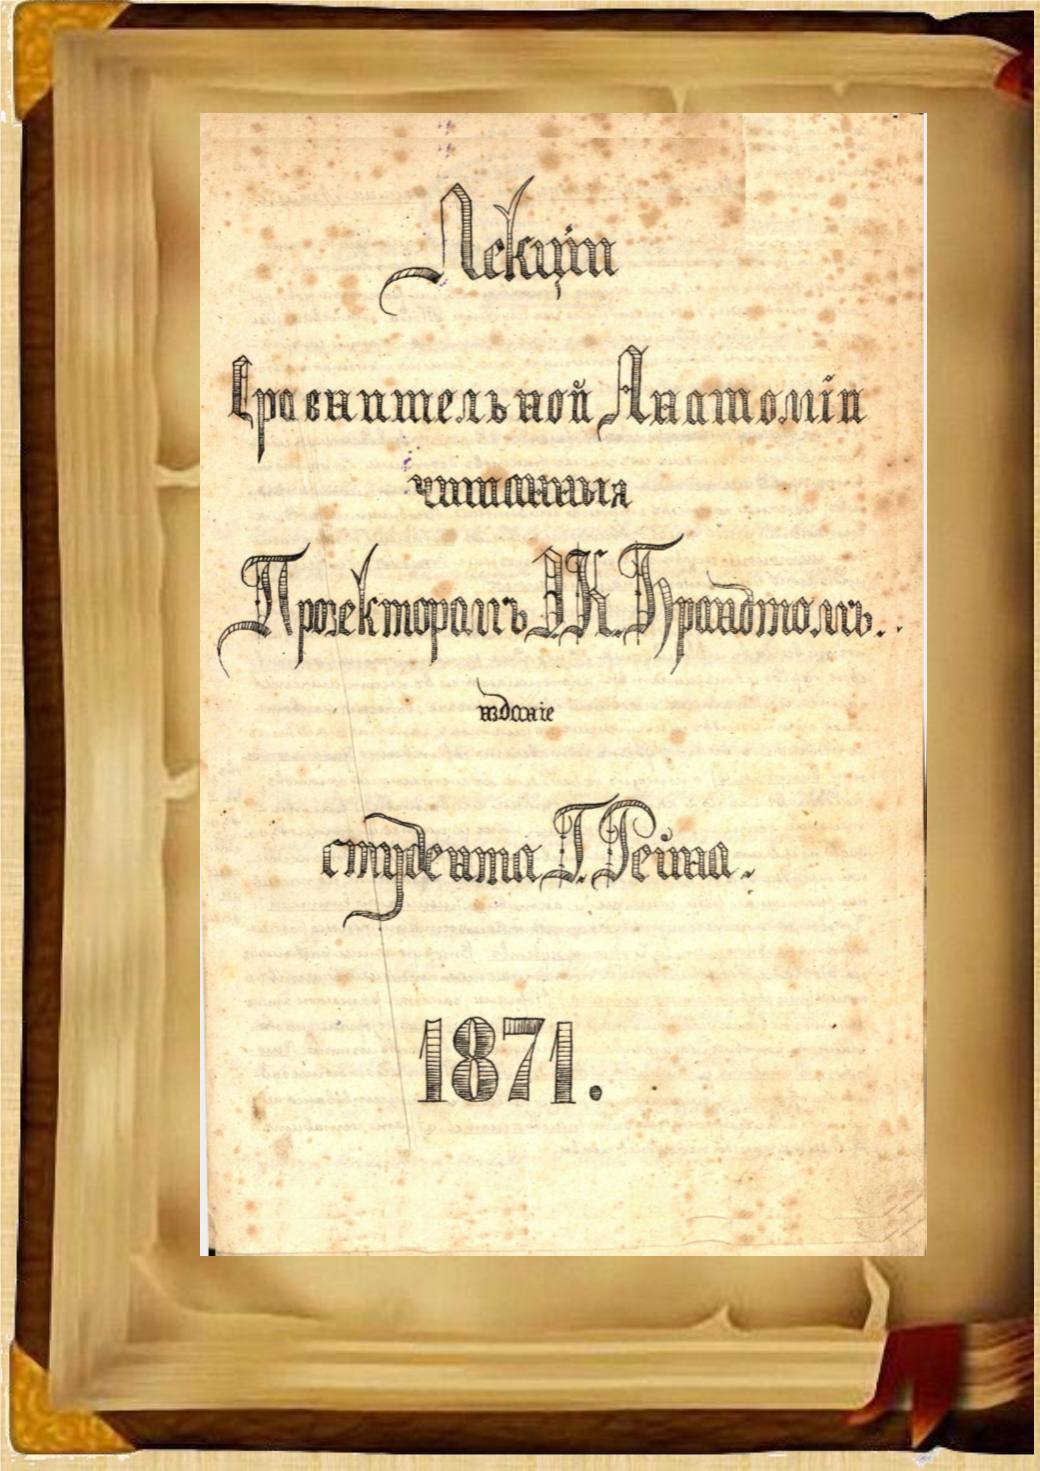 Лекціи
Сравнительной Анатоміи
читанныя
Прозекторомъ Э.К. Брандтомъ.
изданіе
студента Г. Рейна.
1871.